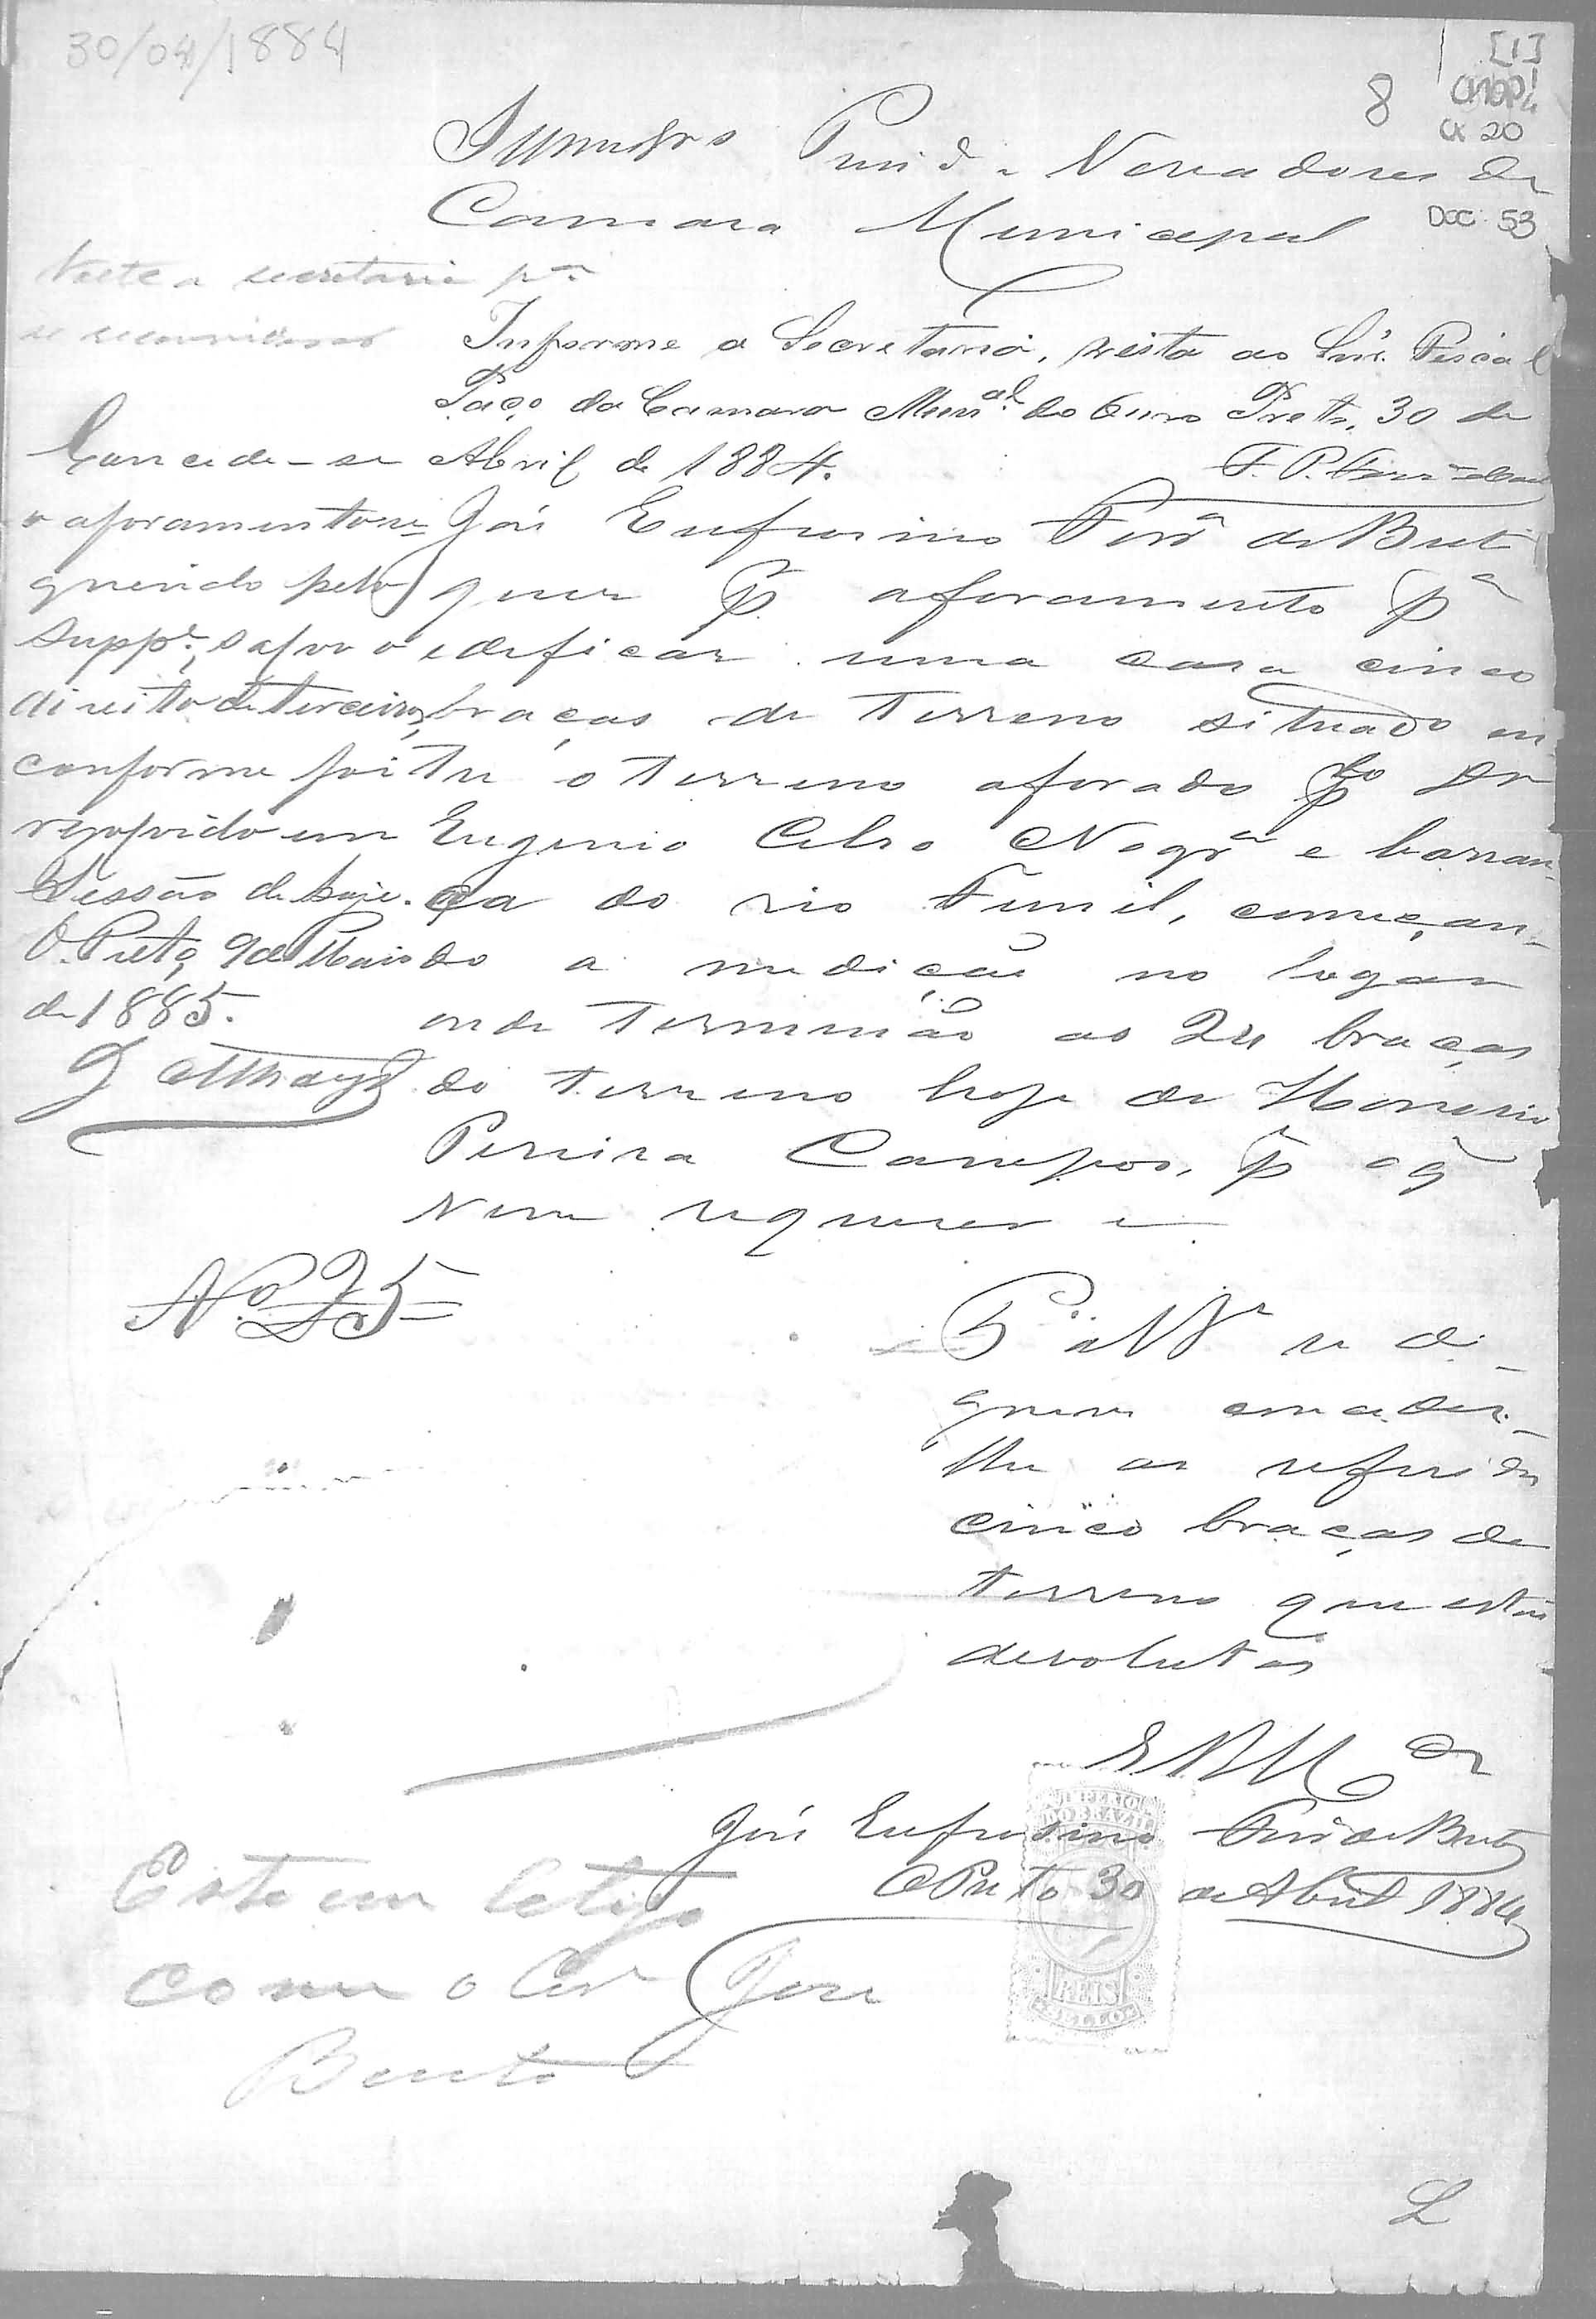 30/04/1884
[1]
CMOP
CX 20
DOC 53
8
Presid e Vereadores da
Camara Municipal
Volte a secretaria pª
Informe a Secretaria, vista ao Snr. Fiscal
Paço da Camara Munal do Ouro Preto, 30 de
Abril de 1884.
Concede-se
o aforamento re=
querido pelo
suppe, salvo o
direito de terceiro,
conforme foi
resolvido em
Sessão de hoje.
O. Preto, 9 de Maio
de 1885.
José Eufrosino Ferrª de Brito
quer pr aforamento pª
edificar uma casa cinco
braças de terreno situado en
tre o terreno aforado plo Dr
Eugenio Celso Nogrª e barran
ca do rio Funil, começan-
do a medição no logar
onde terminão as 24 braças
do terreno hoje de Honorio
Pereira Campos, p o q
vem requerer e
Nº 25
P a VVª se di-
gnem conceder-
lhe as referidas
cinco braças de
terreno que estão
devolutas
E R Mce
José Eufrosino Ferrª de Brito
O Preto 30 de Abril 1884
IMPERIO
DO BRAZIL
REIS
SELLO
Este em letigio
com o Cor José
Bento